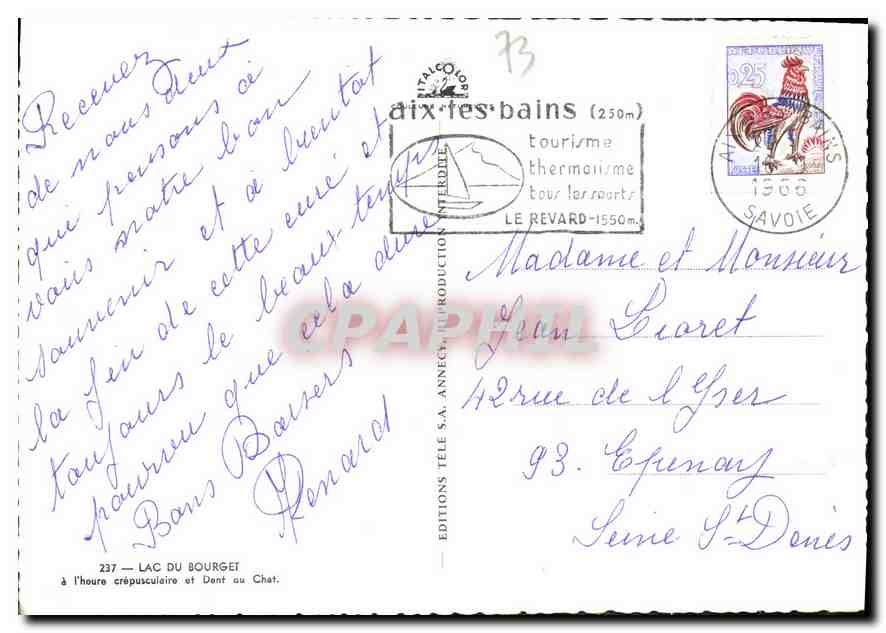 Recevez
de nous deux
qui pensons à
vous notre bon
souvenir et à bientôt
la fin de cette cure et
toujours le beau temps
pourvu que cela dure
Bons Baisers
Renard
237 — LAC DU BOURGET
à l'heure crépusculaire et Dent du Chat.
EDITIONS TELE S.A. ANNECY, REPRODUCTION INTERDITE
73
ITALCOLOR
aix-les-bains (250m)
tourisme
thermalisme
tous les sports
LE REVARD-1550m.
0,25
1966
SAVOIE
Madame et Monsieur
Jean Lioret
42 rue de l'Yser
93. Epinay
Seine St Denis
CPAPHIL